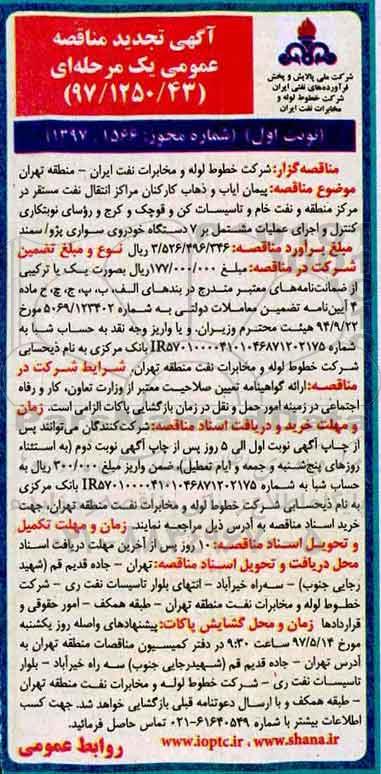 آگهی تجدید مناقصه
عمومی یک مرحله‌ای
(۹۷/۱۲۵۰/۴۳)
شرکت ملی پالایش و پخش
فرآورده‌های نفتی ایران
شرکت خطوط لوله و
مخابرات نفت ایران
(نوبت اول) (شماره مجوز: ۱۵۶۶ . ۱۳۹۷)
مناقصه‌گزار: شرکت خطوط لوله و مخابرات نفت ایران - منطقه تهران
موضوع مناقصه: پیمان ایاب و ذهاب کارکنان مراکز انتقال نفت مستقر در
مرکز منطقه و نفت خام و تاسیسات کن و قوچک و کرج و رؤسای نوبتکاری
کنترل و اجرای عملیات مشتمل بر ۷ دستگاه خودروی سواری پژو/ سمند
مبلغ برآورد مناقصه: ۳/۵۲۶/۴۹۶/۳۴۶ ریال نوع و مبلغ تضمین
شرکت در مناقصه: مبلغ ۱۷۷/۰۰۰/۰۰۰ریال بصورت یک یا ترکیبی
از ضمانت‌نامه‌های معتبر مندرج در بندهای الف، ب، پ، ج، چ، ح ماده
۴ آیین‌نامه تضمین معاملات دولتی به شماره ۵۰۶۹/۱۲۳۴۰۲ مورخ
۹۴/۹/۲۲ هیئت محترم وزیران. و یا واریز وجه نقد به حساب شبا به
شماره IR۵۷۰۱۰۰۰۰۴۱۰۱۰۴۶۸۷۱۲۰۲۱۷۵ بانک مرکزی به نام ذیحسابی
شرکت خطوط لوله و مخابرات نفت منطقه تهران. شرایط شرکت در
مناقصه: ارائه گواهینامه تعیین صلاحیت معتبر از وزارت تعاون، کار و رفاه
اجتماعی در زمینه امور حمل و نقل در زمان بازگشایی پاکات الزامی است. زمان
و مهلت خرید و دریافت اسناد مناقصه: شرکت‌کنندگان می‌توانند پس
از چاپ آگهی نوبت اول الی ۵ روز پس از چاپ آگهی نوبت دوم (به استثناء
روزهای پنج‌شنبه و جمعه و ایام تعطیل)، ضمن واریز مبلغ ۳۰۰/۰۰۰ ریال به
حساب شبا به شماره IR۵۷۰۱۰۰۰۰۴۱۰۱۰۴۶۸۷۱۲۰۲۱۷۵ بانک مرکزی
به نام ذیحسابی شرکت خطوط لوله و مخابرات نفت منطقه تهران، جهت
خرید اسناد مناقصه به آدرس ذیل مراجعه نمایند. زمان و مهلت تکمیل
و تحویل اسناد مناقصه: ۱۰ روز پس از آخرین مهلت دریافت اسناد
محل دریافت و تحویل اسناد مناقصه: تهران - جاده قدیم قم (شهید
رجایی جنوب) - سه‌راه خیرآباد - انتهای بلوار تاسیسات نفت ری - شرکت
خطوط لوله و مخابرات نفت منطقه تهران - طبقه همکف - امور حقوقی و
قراردادها زمان و محل گشایش پاکات: پیشنهادهای واصله روز یکشنبه
مورخ ۹۷/۵/۱۴ ساعت ۹:۳۰ در دفتر کمیسیون مناقصات منطقه تهران به
آدرس تهران - جاده قدیم قم (شهیدرجایی جنوب) سه راه خیرآباد - بلوار
تاسیسات نفت ری - شرکت خطوط لوله و مخابرات نفت منطقه تهران
- طبقه همکف و با ارسال دعوتنامه قبلی بازگشایی خواهد شد. جهت کسب
اطلاعات بیشتر با شماره ۶۱۶۴۰۵۴۹-۰۲۱ تماس حاصل فرمائید.
www.ioptc.ir , www.shana.ir
روابط عمومی